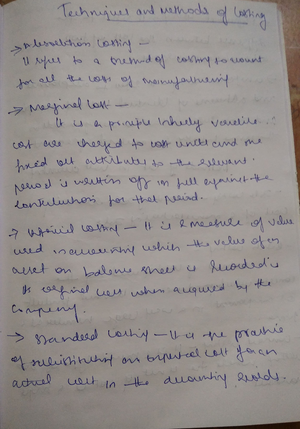 Techniques and methods of Costing
→ Absorbtion Costing —
It refer to a method of costing to account
for all the costs of manufacturing
→ Marginal Cost —
It is a principle whereby variable
cost are charged to cost units and the
fixed cost attributes to the relevant
period is written off in full against the
contribution for that period.
→ Costing — It is a measure of value
used in accounting which the value of an
asset on balance sheet is recorded is
its original cost when acquired by the
company.
→ Standard Costing — It is the practice
of substituting an expected cost for an
actual cost in the accounting records.